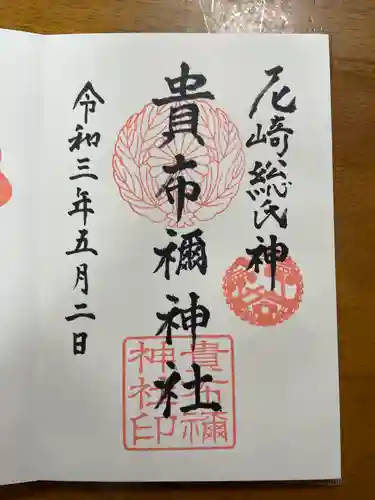 尼崎総氏神
貴布禰神社
令和三年五月二日
貴布禰
神社印